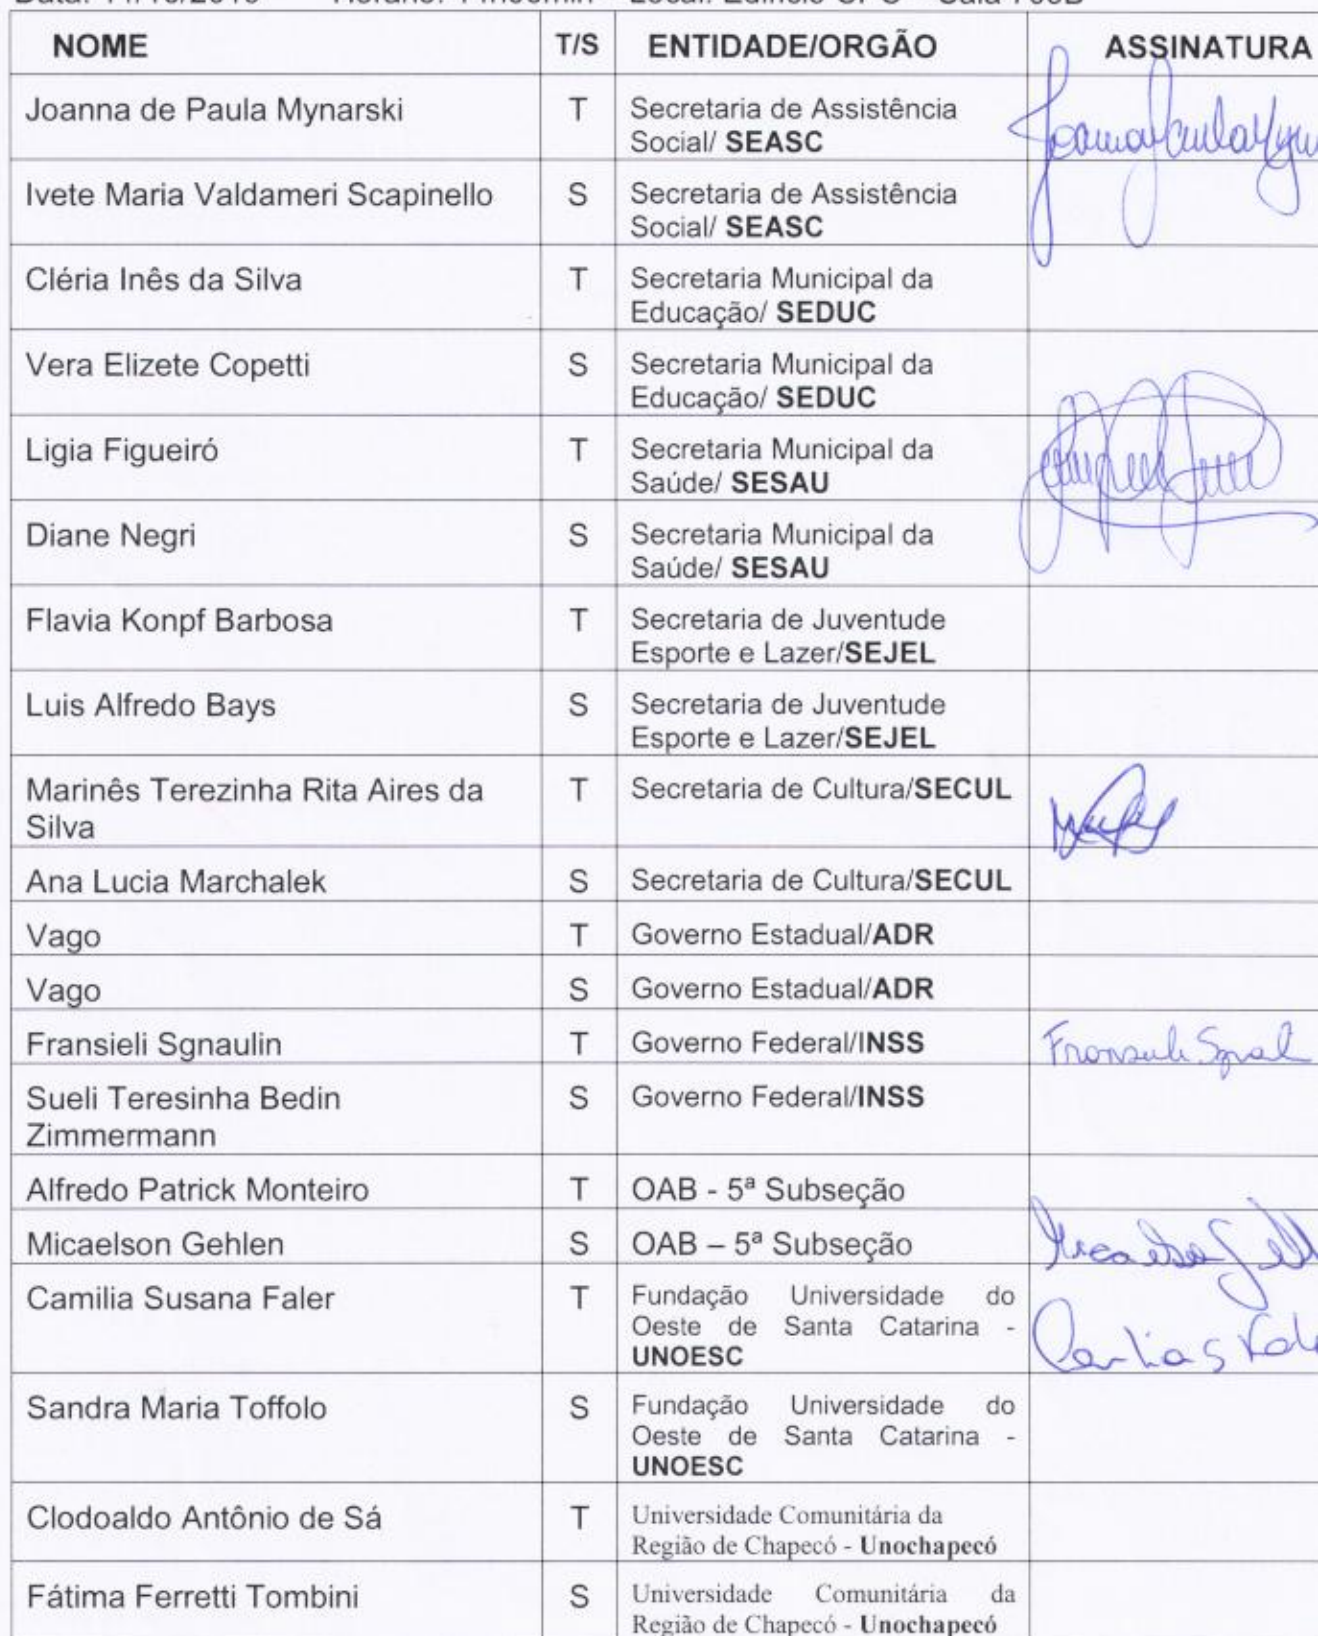 NOME T/S ENTIDADE/ORGÃO ASSINATURA
Joanna de Paula Mynarski T Secretaria de Assistência
Social/ SEASC
Ivete Maria Valdameri Scapinello S Secretaria de Assistência
Social/ SEASC
Cléria Inês da Silva T Secretaria Municipal da
Educação/ SEDUC
Vera Elizete Copetti S Secretaria Municipal da
Educação/ SEDUC
Ligia Figueiró T Secretaria Municipal da
Saúde/ SESAU
Diane Negri S Secretaria Municipal da
Saúde/ SESAU
Flavia Konpf Barbosa T Secretaria de Juventude
Esporte e Lazer/SEJEL
Luis Alfredo Bays S Secretaria de Juventude
Esporte e Lazer/SEJEL
Marinês Terezinha Rita Aires da T Secretaria de Cultura/SECUL
Silva
Ana Lucia Marchalek S Secretaria de Cultura/SECUL
Vago T Governo Estadual/ADR
Vago S Governo Estadual/ADR
Fransieli Sgnaulin T Governo Federal/INSS
Sueli Teresinha Bedin S Governo Federal/INSS
Zimmermann
Alfredo Patrick Monteiro T OAB - 5ª Subseção
Micaelson Gehlen S OAB – 5ª Subseção
Camilia Susana Faler T Fundação Universidade do
Oeste de Santa Catarina -
UNOESC
Sandra Maria Toffolo S Fundação Universidade do
Oeste de Santa Catarina -
UNOESC
Clodoaldo Antônio de Sá T Universidade Comunitária da
Região de Chapecó - Unochapecó
Fátima Ferretti Tombini S Universidade Comunitária da
Região de Chapecó - Unochapecó